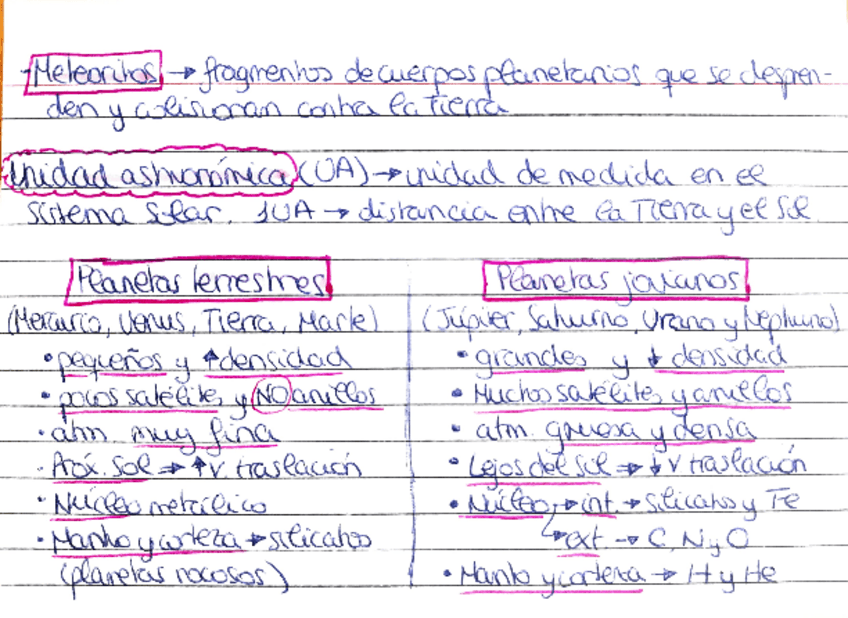 -Meteoritos → fragmentos de cuerpos planetarios que se despren-
den y colisionan contra la Tierra
Unidad astronómica (UA) → unidad de medida en el
sistema solar. 1UA → distancia entre la Tierra y el Sol
Planetas terrestres
(Mercurio, Venus, Tierra, Marte)
• pequeños y ↑densidad
• pocos satélites y NO anillos
• atm. muy fina
• Próx. Sol → ↑v traslación
• Núcleo metálico
• Manto y corteza → silicatos
(planetas rocosos)
Planetas jovianos
(Júpiter, Saturno, Urano y Neptuno)
• grandes y ↓ densidad
• Muchos satélites y anillos
• atm. gruesa y densa
• Lejos del sol → ↓v traslación
• Núcleo → int. → silicatos y Fe
→ ext. → C, N y O
• Manto y corteza → H y He